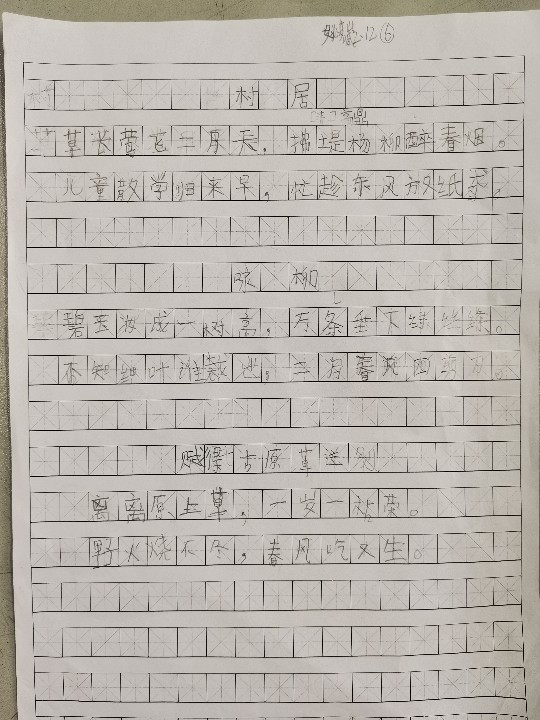 12⑥
村居
高鼎
草长莺飞二月天，拂堤杨柳醉春烟。
儿童散学归来早，忙趁东风放纸
咏柳
碧玉妆成一树高，万条垂下绿丝绦。
不知细叶谁裁出，二月春风四
赋得古原草送别
离离原上草，一岁一站荣。
野火烧不冬，春风吃又生。